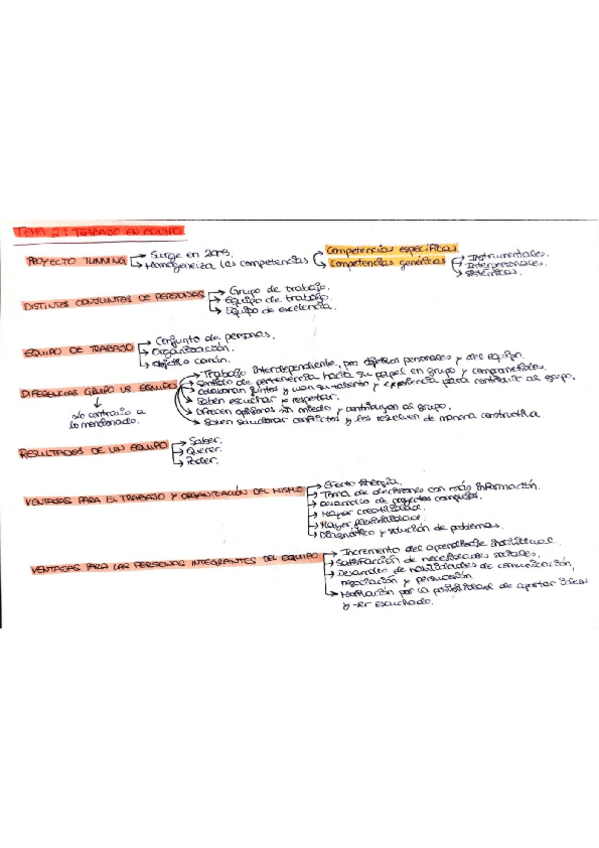 TEMA 2: TRABAJO EN EQUIPO
PROYECTO TUNNING
Surge en 2003.
Homogeneiza las competencias
Competencias específicas
Competencias genéricas
Instrumentales.
Interpersonales.
Sistémicas.
DISTINTOS CONJUNTOS DE PERSONAS
Grupo de trabajo.
Equipo de trabajo.
Equipo de excelencia.
EQUIPO DE TRABAJO
Conjunto de personas.
Organización.
Objetivo común.
DIFERENCIAS GRUPO VS EQUIPO
Lo contrario a
lo mencionado.
Trabajo interdependiente, pro objetivos personales y del equipo.
Sentido de pertenencia hacia su papel en grupo y comprometidos.
Colaboran juntos y usan su talento y experiencia para contribuir al grupo.
Saben escuchar y respetar.
Ofrecen opiniones sin miedo y contribuyen al grupo.
Saben solucionar conflictos y los resuelven de manera constructiva
RESULTADOS DE UN EQUIPO
Saber.
Querer.
Poder.
VENTAJAS PARA EL TRABAJO Y ORGANIZACIÓN DEL MISMO
Efecto sinergia.
Toma de decisiones con más información.
Desarrollo de proyectos complejos.
Mayor creatividad.
Mayor flexibilidad.
Diagnóstico y solución de problemas.
VENTAJAS PARA LAS PERSONAS INTEGRANTES DEL EQUIPO
Incremento del aprendizaje individual.
Satisfacción de necesidades sociales.
Desarrollo de habilidades de comunicación,
negociación y persuasión.
Motivación por la posibilidad de aportar ideas
y ser escuchado.